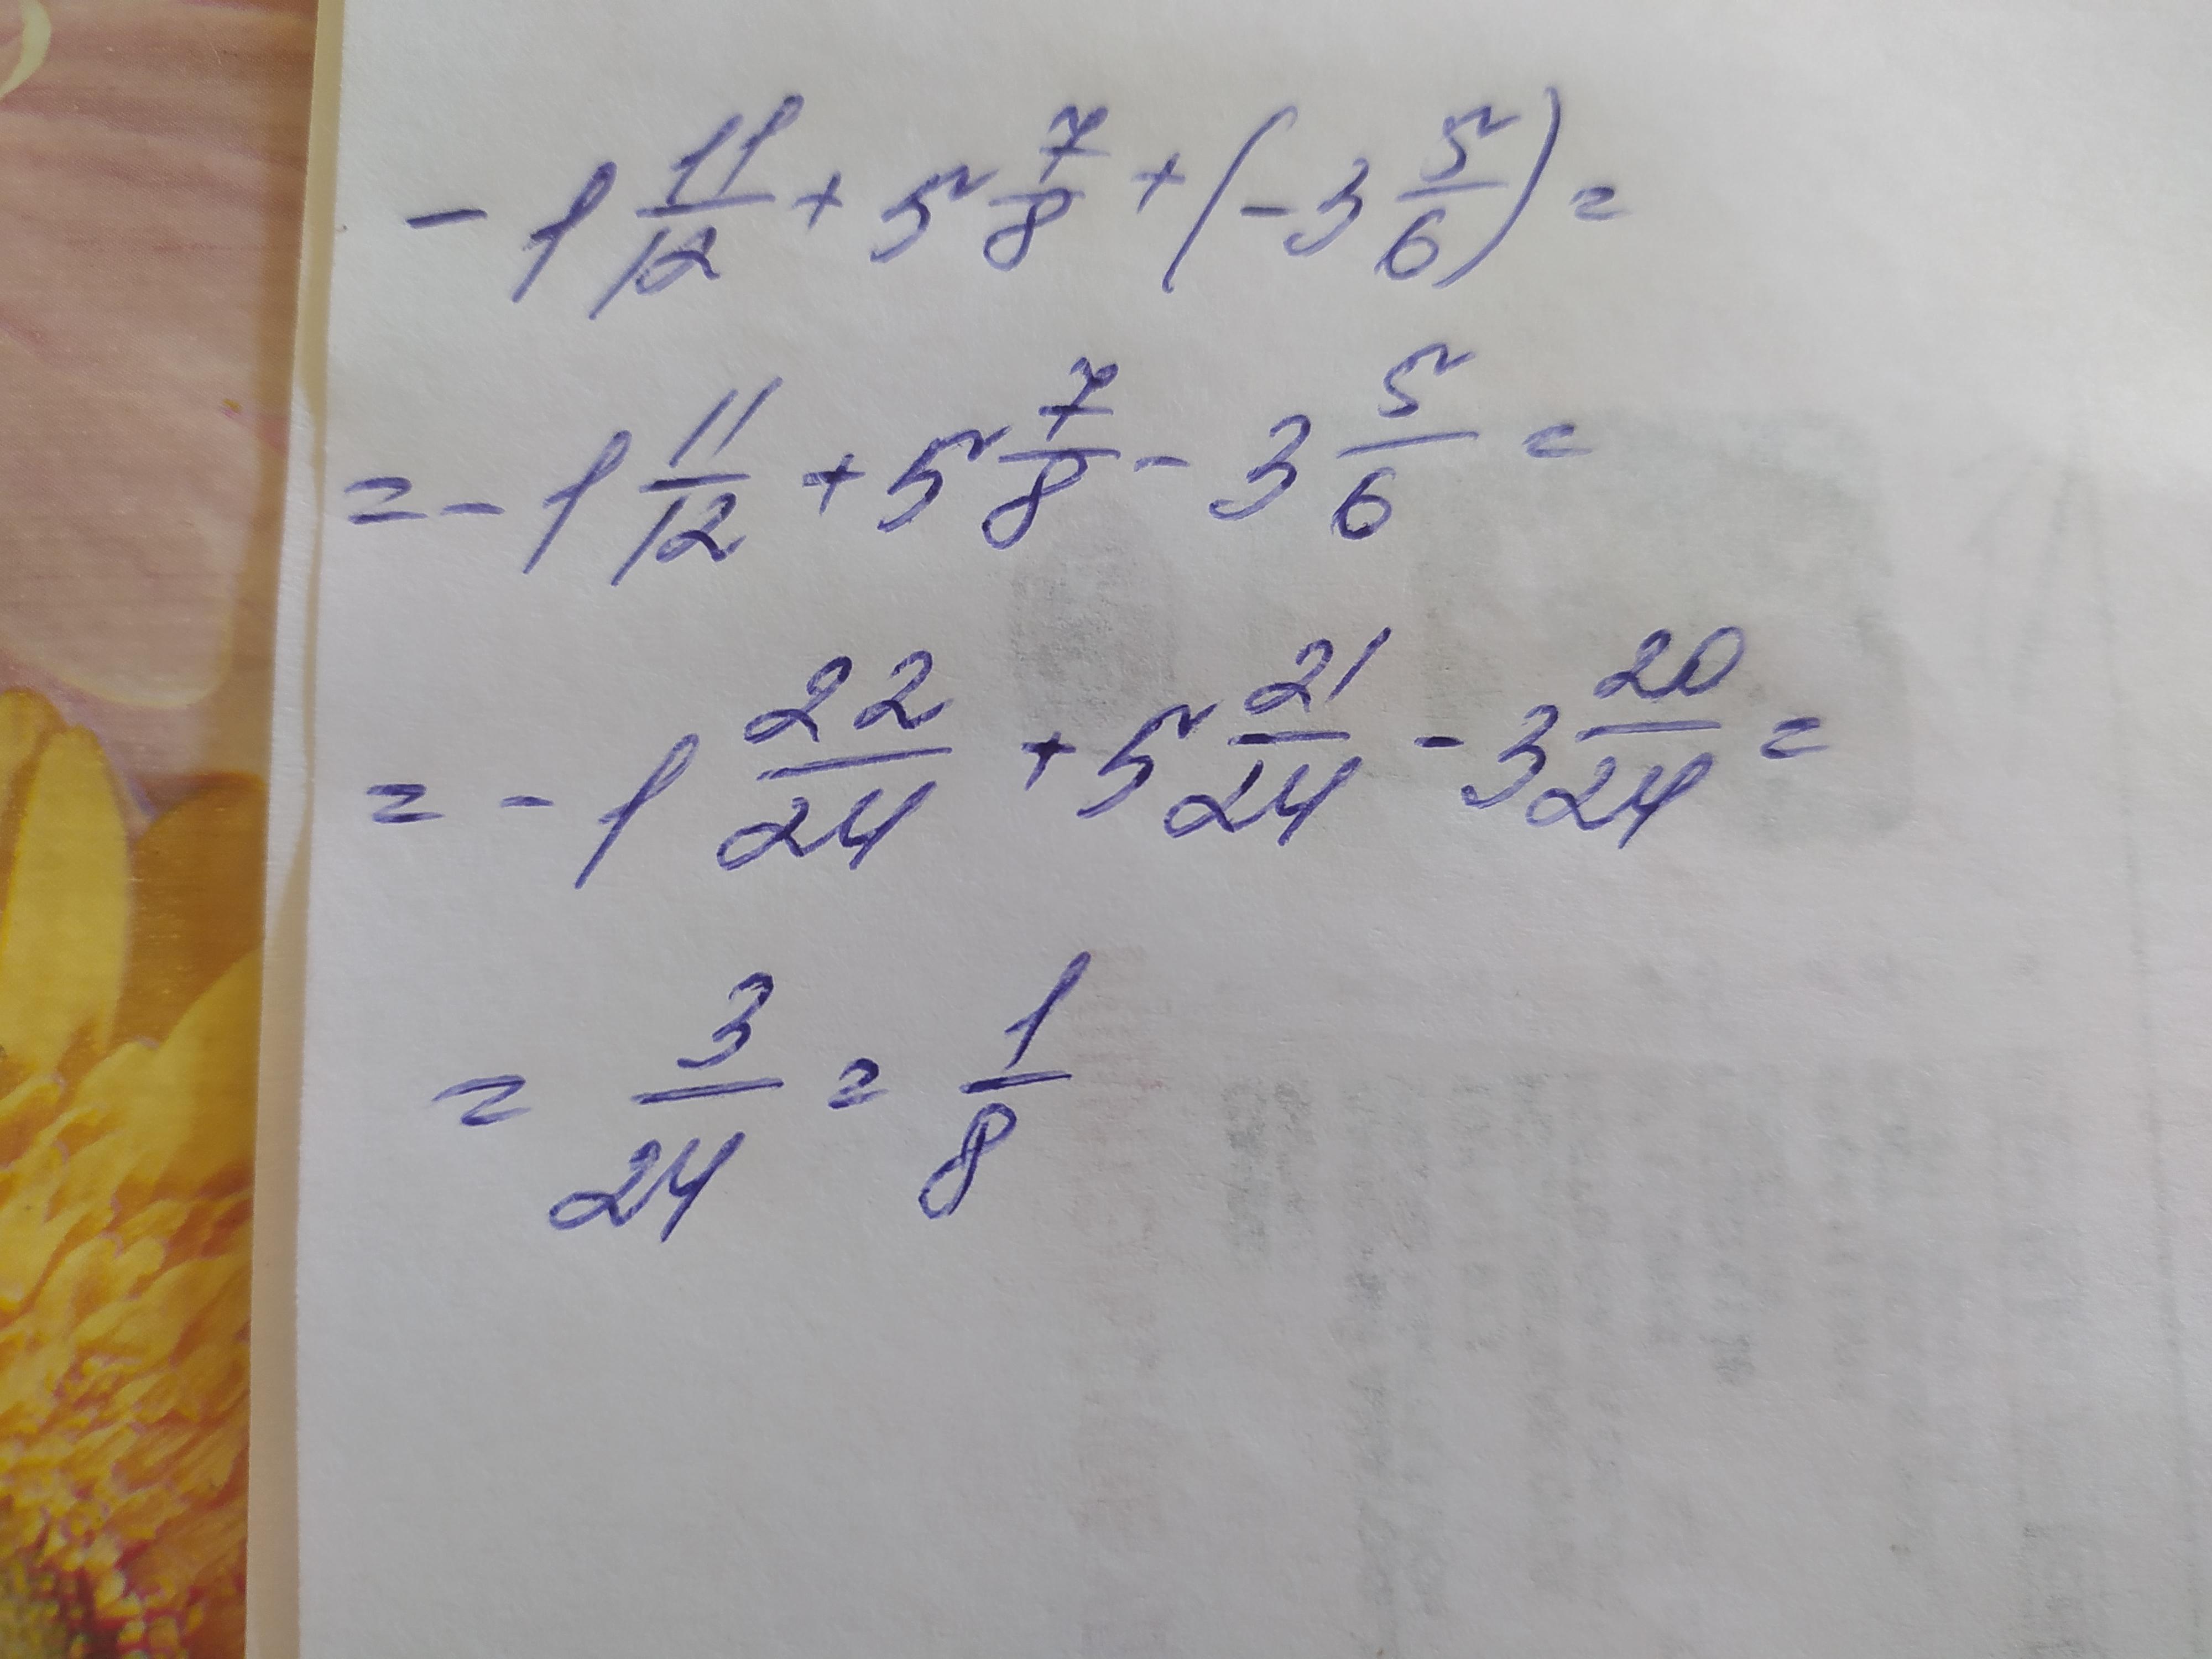 - 1 11/12 + 5 7/8 + (- 3 5/6) =
= - 1 11/12 + 5 7/8 - 3 5/6 =
= - 1 22/24 + 5 21/24 - 3 20/24 =
= 3/24 = 1/8